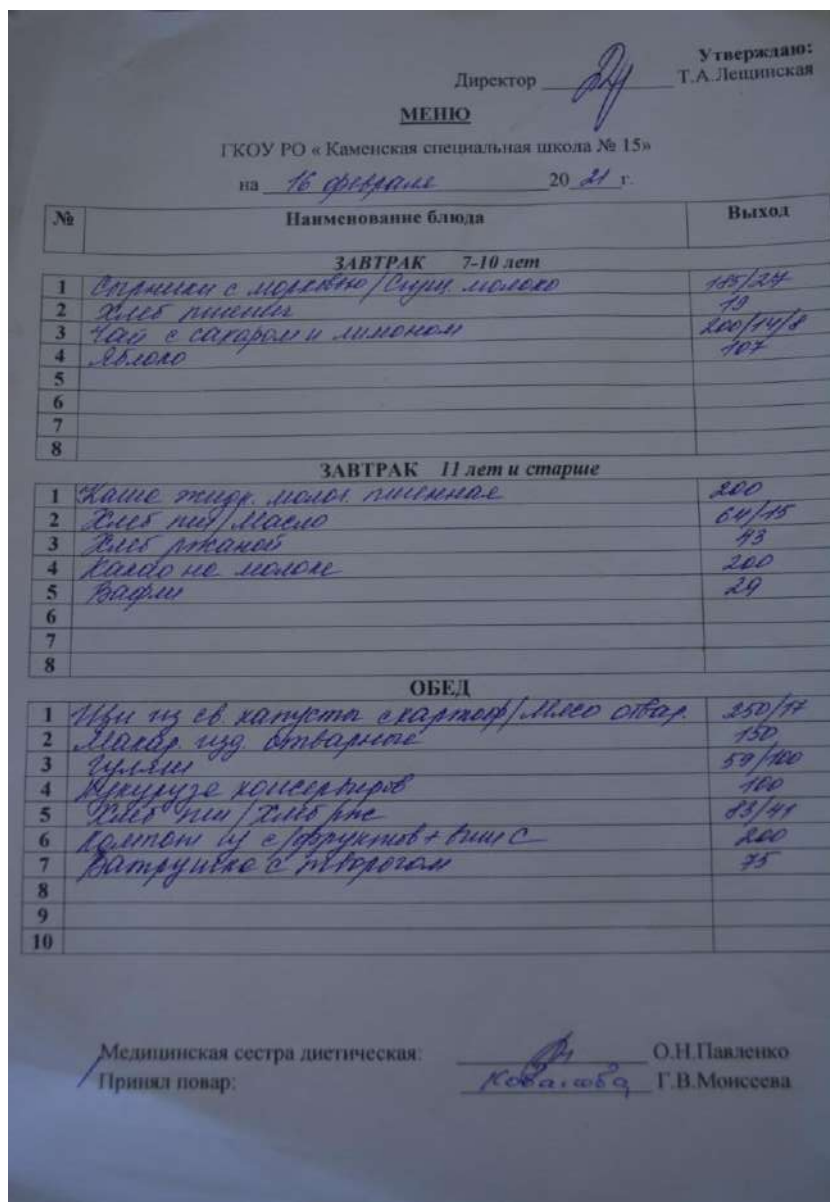 Утверждаю:
Директор Т.А.Лещинская
МЕНЮ
ГКОУ РО « Каменская специальная школа № 15»
на 16 февраля 20 21 г.
№ Наименование блюда Выход
ЗАВТРАК 7-10 лет
1 Сырники с морковью/Сгущ. молоко /24
2 Хлеб пшенич 19
3 Чай с сахаром и лимоном 200/14/8
4 Яблоко 107
5
6
7
8
ЗАВТРАК 11 лет и старше
1 Каша жидк. молоч. пшенная 200
2 Хлеб пш/Масло 64/15
3 Хлеб ржаной 43
4 Какао на молоке 200
5 Вафли 29
6
7
8
ОБЕД
1 Щи из св. капусты с картоф/Мясо отвар. 250/17
2 Макар. изд. отварные 150
3 Гуляш 59/100
4 Кукуруза консервиров 100
5 Хлеб пш/Хлеб рж 83/41
6 Компот из с/фруктов + вит С 200
7 Ватрушка с творогом 75
8
9
10
Медицинская сестра диетическая: О.Н.Павленко
Принял повар: Г.В.Моисеева